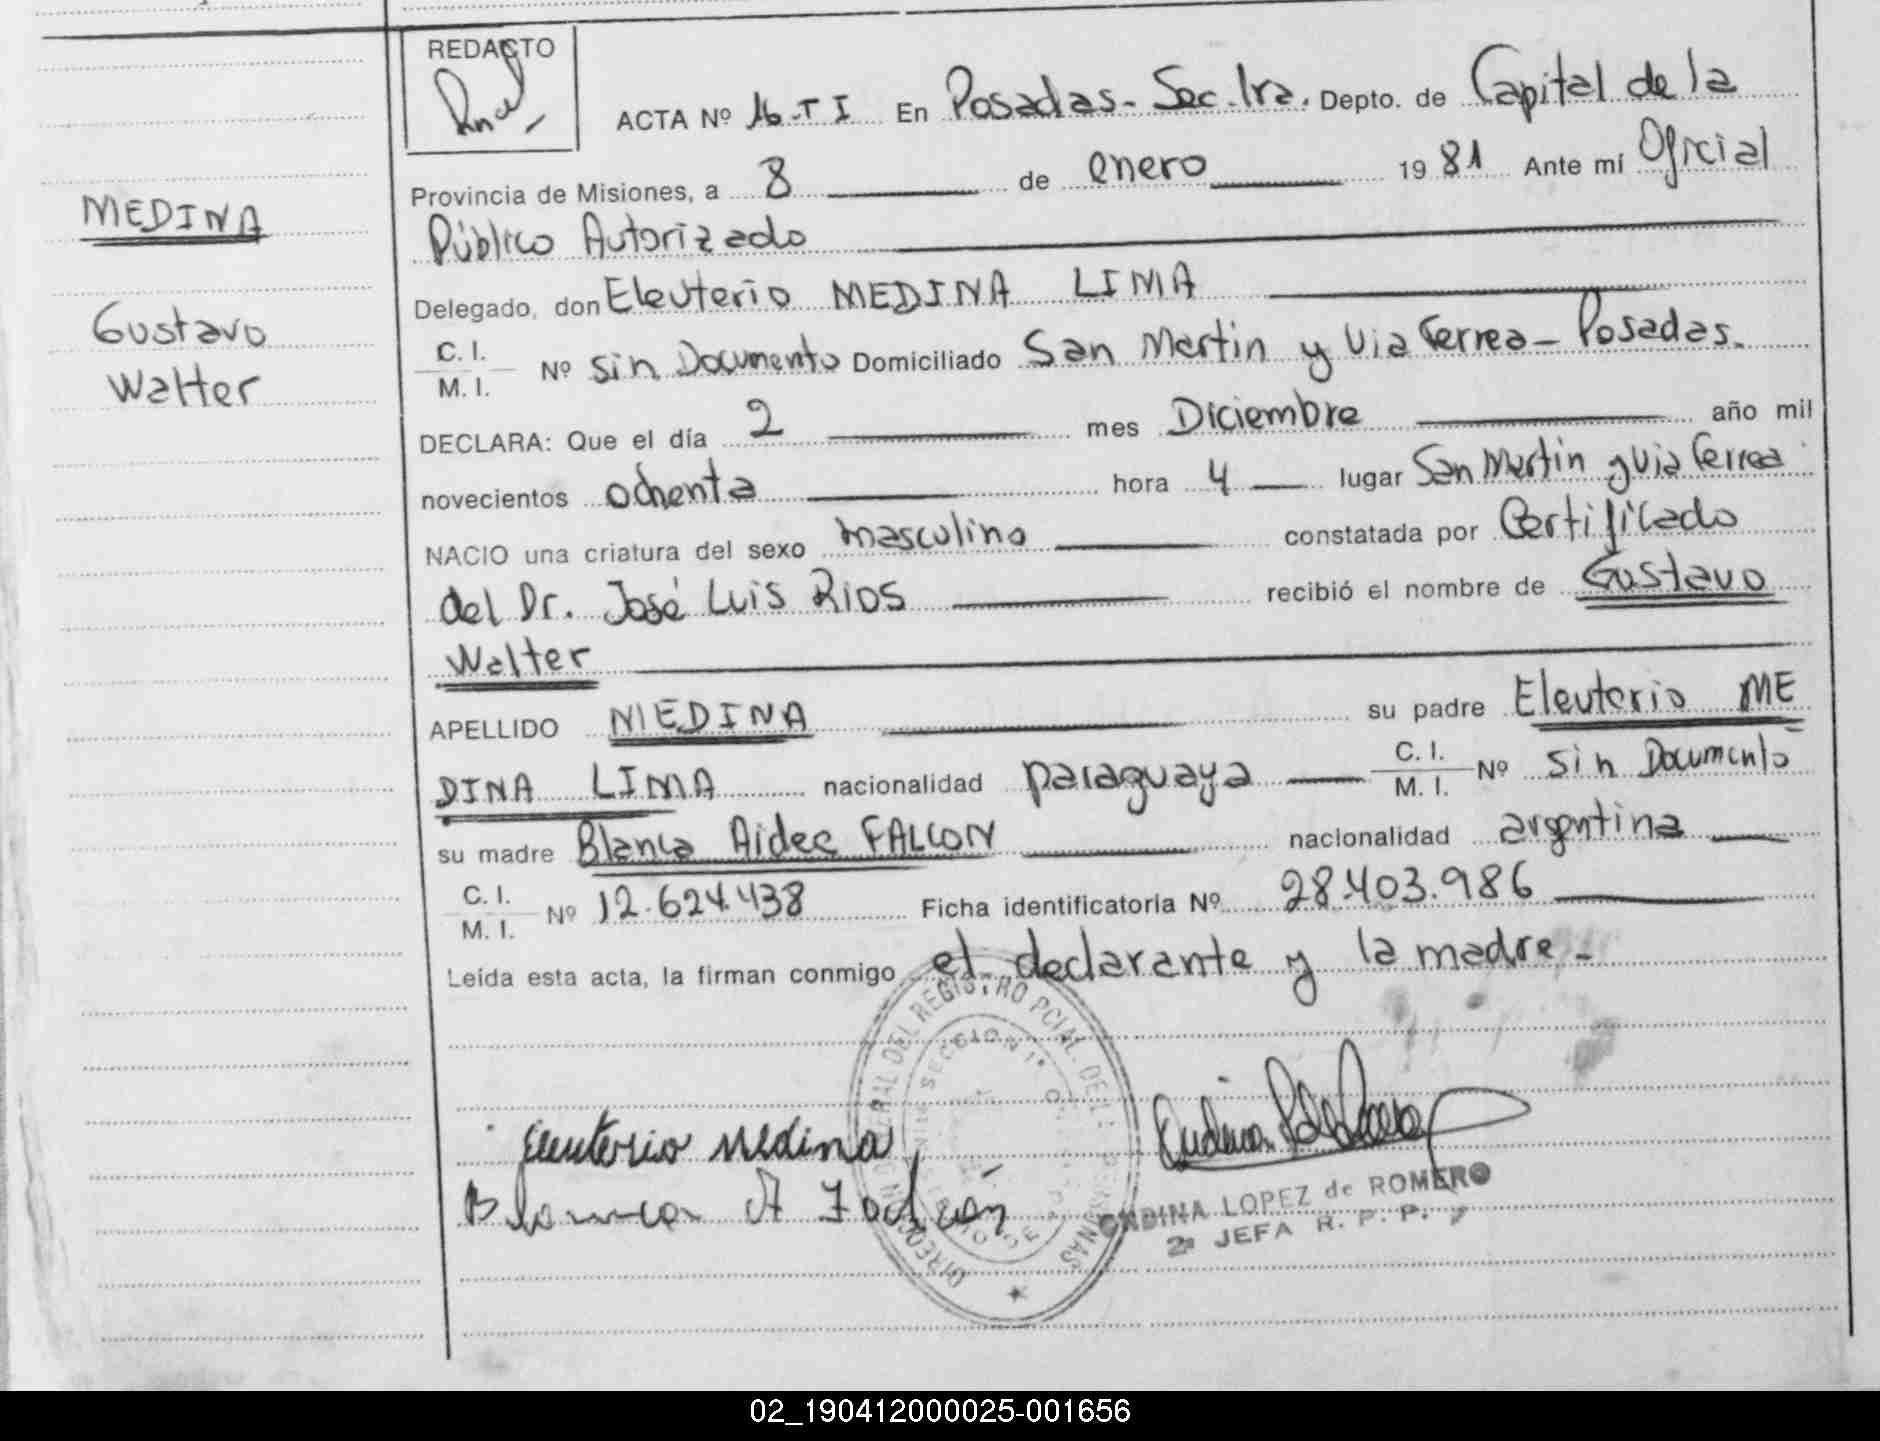 REDACTO
ACTA Nº 16-T I En Posadas-Sec.1ra. Depto. de Capital de la
Provincia de Misiones, a 8 de enero 1981 Ante mí Oficial
Público Autorizado
MEDINA
Gustavo
Walter
Delegado, don Eleuterio MEDINA LIMA
C. I.
M. I. Nº Sin Documento Domiciliado San Martin y Via Ferrea - Posadas.
DECLARA: Que el día 2 mes Diciembre año mil
novecientos ochenta hora 4 lugar San Martin y Via Ferrea
NACIO una criatura del sexo masculino constatada por Certificado
del Dr. José Luis RIOS recibió el nombre de Gustavo
Walter
APELLIDO MEDINA su padre Eleuterio ME
DINA LIMA nacionalidad paraguaya C. I.
M. I. Nº Sin Documento
su madre Blanca Aidee FALCON nacionalidad argentina
C. I.
M. I. Nº 12.624.438 Ficha identificatoria Nº 28.403.986
Leída esta acta, la firman conmigo el declarante y la madre-
Eleuterio Medina
Blanca A Falcón
ONDINA LOPEZ de ROMERO
2ª JEFA R. P. P.
DIRECCION GENERAL DEL REGISTRO PCIAL. DE L PERSONAS
SECCION 1ª
02_190412000025-001656